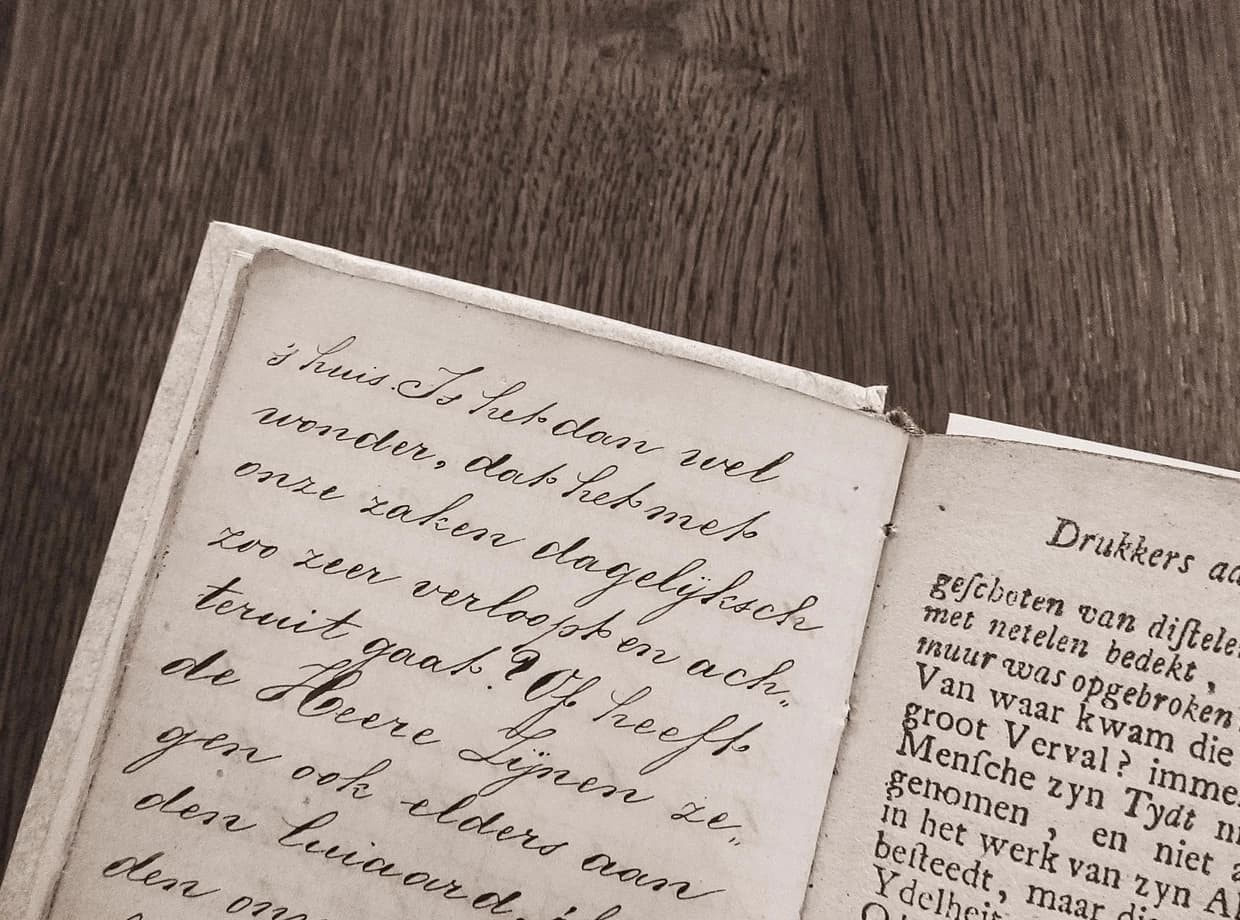 's huis. Is het dan wel
wonder, dat het met
onze zaken dagelijksch
zoo zeer verloopt en ach„
teruit gaat? Of heeft
de Heere Zijnen ze„
gen ook elders aan
den luiaard,
den
Drukkers aa
geſchoten van diſtele
met netelen bedekt,
muur was opgebroken
Van waar kwam die
groot Verval? imme
Menſche zyn Tydt n
genomen, en niet a
in het werk van zyn A
beſteedt, maar di
Ydelheit